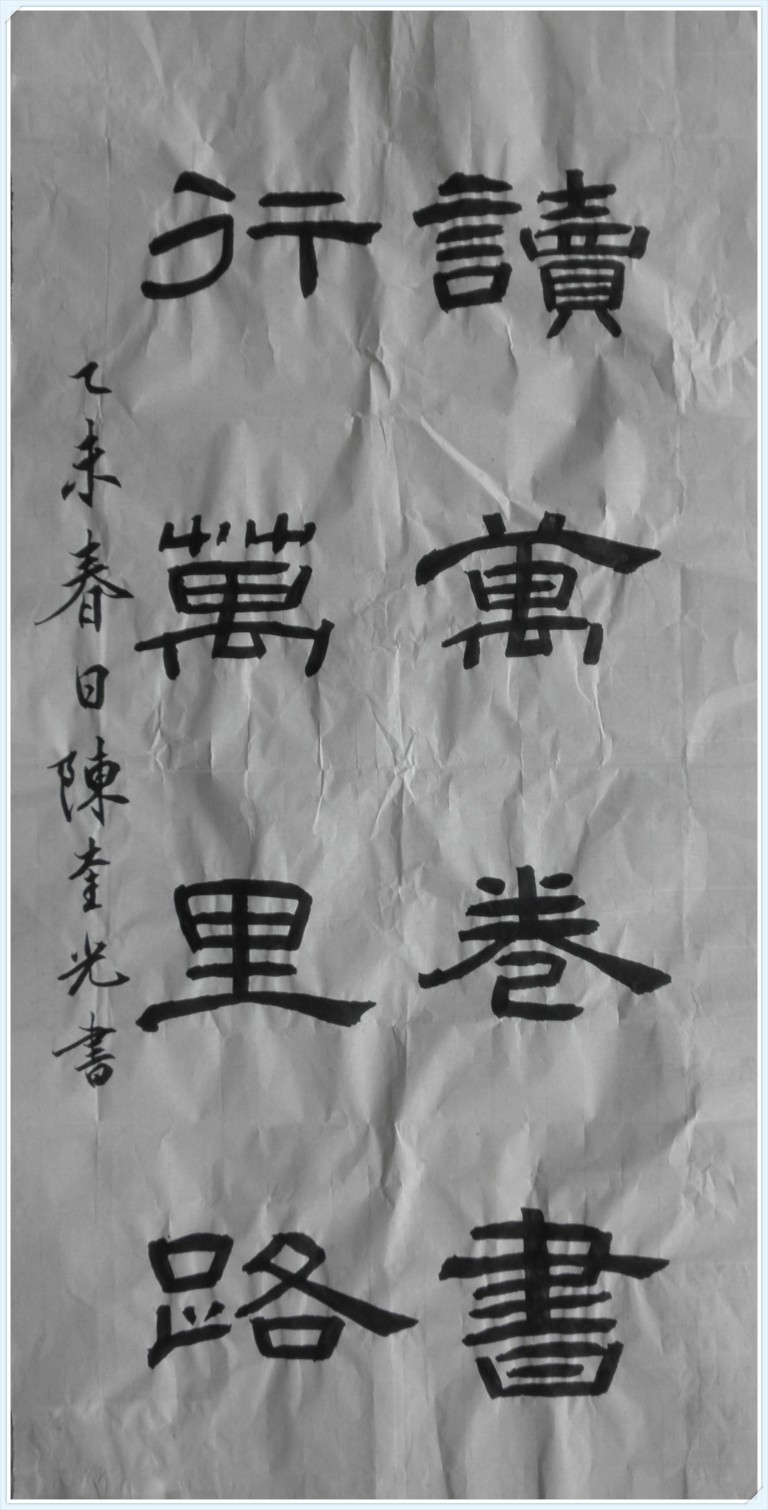 讀萬卷書
行萬里路
乙未春日陳奎光書